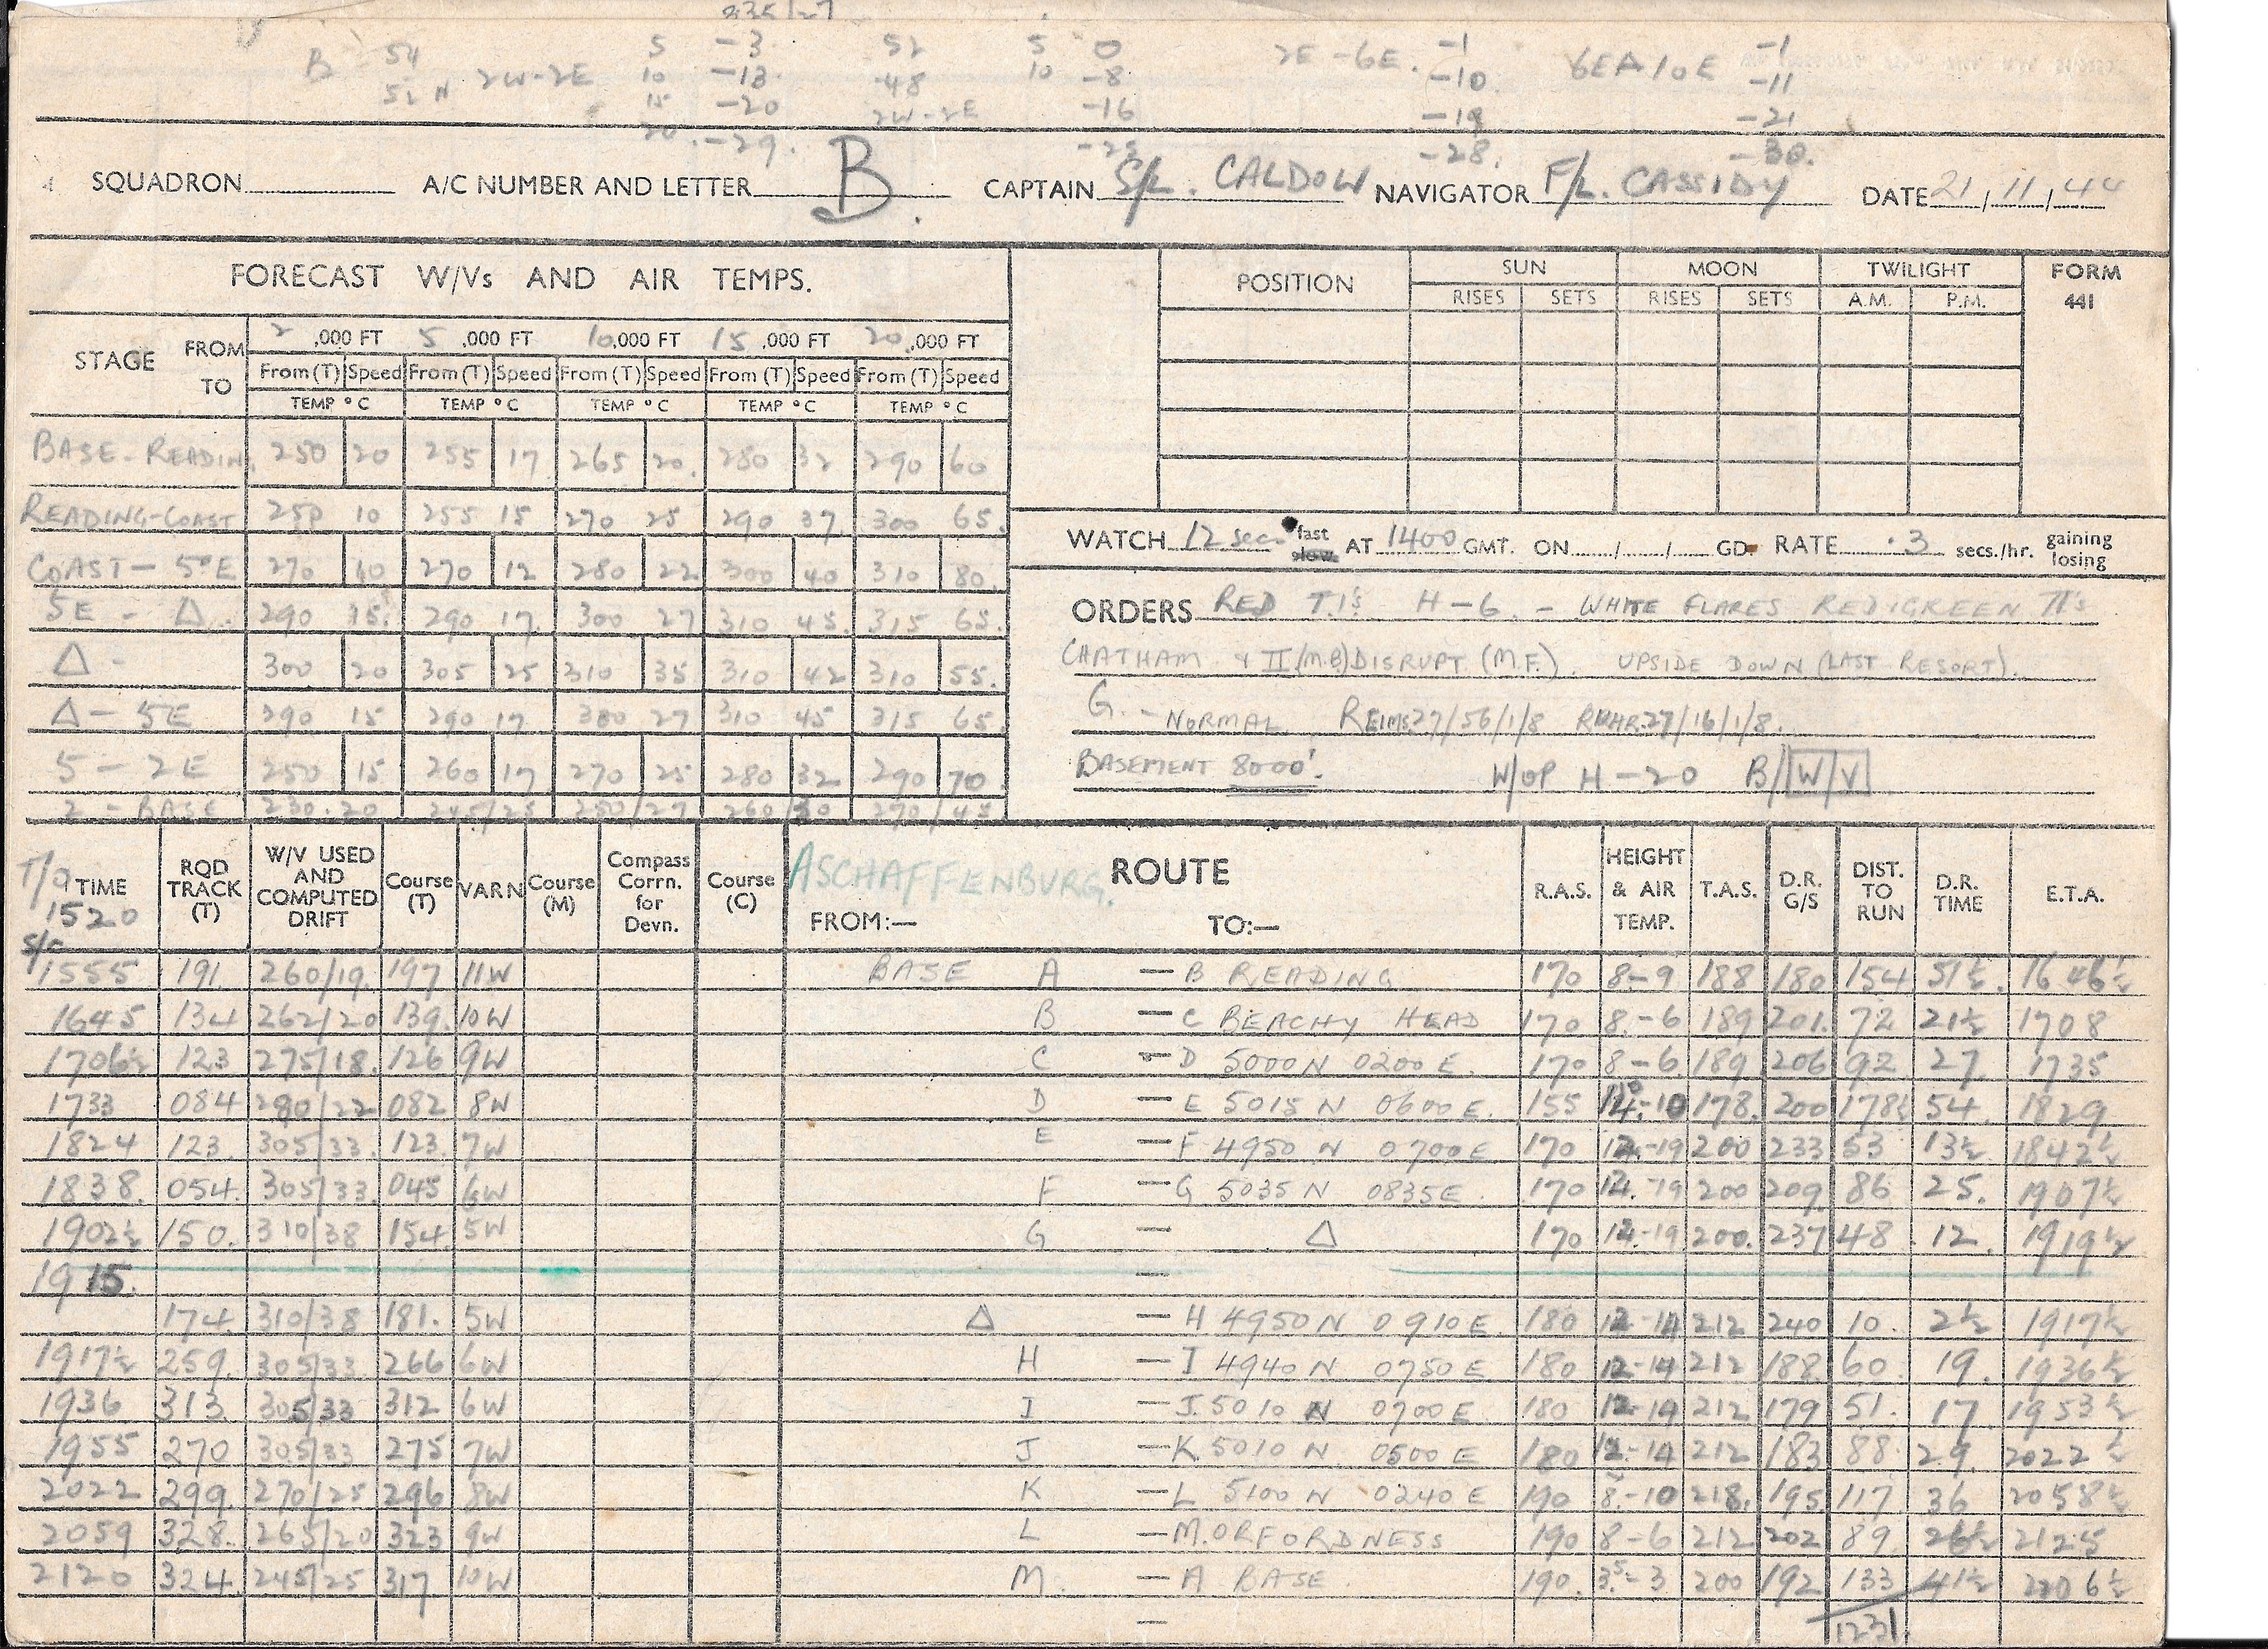 235/27
B 54 5 -3 52 5 0 2E -6E. -1 6E 10E -1
52 N 2W-2E 10 -13 48 10 -8 -10 -11
15 -20 2W-2E -16 -19 -21
20 -29. -25 -28. -30.
SQUADRON A/C NUMBER AND LETTER B. CAPTAIN S/L. CALDOW NAVIGATOR F/L. CASSIDY DATE 21/11/44
FORECAST W/Vs AND AIR TEMPS.
POSITION SUN MOON TWILIGHT FORM 441
RISES SETS RISES SETS A.M. P.M.
STAGE FROM TO 2,000 FT 5,000 FT 10,000 FT 15,000 FT 20,000 FT
From (T) Speed From (T) Speed From (T) Speed From (T) Speed From (T) Speed
TEMP °C TEMP °C TEMP °C TEMP °C TEMP °C
BASE-READIN 250 20 255 17 265 20. 280 32 290 60
READING-COAST 250 10 255 15 270 25 290 37. 300 65.
COAST - 5°E 270 10 270 12 280 22 300 40 310 80.
5E - Δ. 290 15. 290 17. 300 27 310 45. 315 65.
Δ - 300 20 305 25 310 35 310 42 310 55.
Δ - 5E 290 15 290 17 300 27 310 45 315 65.
5 - 2E 250 15 260 17 270 25 280 32 290 70
2 - BASE 230.20 245/25 250/27 260/30 270/45
WATCH 12 secs fast slow AT 1400 GMT. ON / / GD RATE .3 secs./hr. gaining losing
ORDERS RED T.I's H-6. - WHITE FLARES RED/GREEN TI's
CHATHAM & II (M.B) DISRUPT (M.F.). UPSIDE DOWN (LAST RESORT).
G. - NORMAL REIMS 27/56/1/8 RUHR 27/16/1/8.
BASEMENT 8000'. W/OP H-20 B/W/V
T/O TIME 1520 S/C RQD TRACK (T) W/V USED AND COMPUTED DRIFT Course (T) VARN Course (M) Compass Corrn. for Devn. Course (C) ASCHAFFENBURG. ROUTE FROM:— TO:— R.A.S. HEIGHT & AIR TEMP. T.A.S. D.R. G/S DIST. TO RUN D.R. TIME E.T.A.
1555 191 260/19. 197 11W BASE A — B READING 170 8-9 188 180 154 51½. 1646½
1645 134 262/20 139. 10W B — C BEACHY HEAD 170 8.-6 189 201. 72 21½ 1708
1706½ 123 275/18. 126 9W C — D 5000N 0200E. 170 8-6 189 206 92 27 1735
1733 084 280/22 082 8W D — E 5015N 0600E. 155 -10 178. 200 178½ 54. 1829
1824 123. 305/33. 123. 7W E — F 4950N 0700E 170 12.-19 200 233 53 13½ 1842½
1838. 054. 305/33. 045 6W F — G 5035N 0835E. 170 12.-19 200 209 86 25. 1907½
1902½ 150. 310/38 154. 5W G — Δ 170 12.-19 200. 237 48 12. 1919½
1915. —
174. 310/38 181. 5W Δ — H 4950N 0910E 180 12-14 212 240 10. 2½ 1917½
1917½ 259. 305/33. 266 6W H — I 4940N 0750E 180 12-14 212 188 60 19. 1936½
1936 313 305/33 312 6W I — J. 5010N 0700E 180 12-14 212 179 51. 17 1953½
1955 270 305/33 275 7W J — K 5010N 0500E 180 12-14 212 183 88 29. 2022½
2022 299. 270/25 296 8W K — L 5100N 0240E 190 8.-10 218. 195 117 36 2058½
2059 328. 265/20 323 9W L — M. ORFORDNESS 190 8-6 212 202 89 26½ 2125
2120 324. 245/25 317 10W M. — A BASE. 190. 3.5-3 200 192 133 41½ 2206½
— 1231.